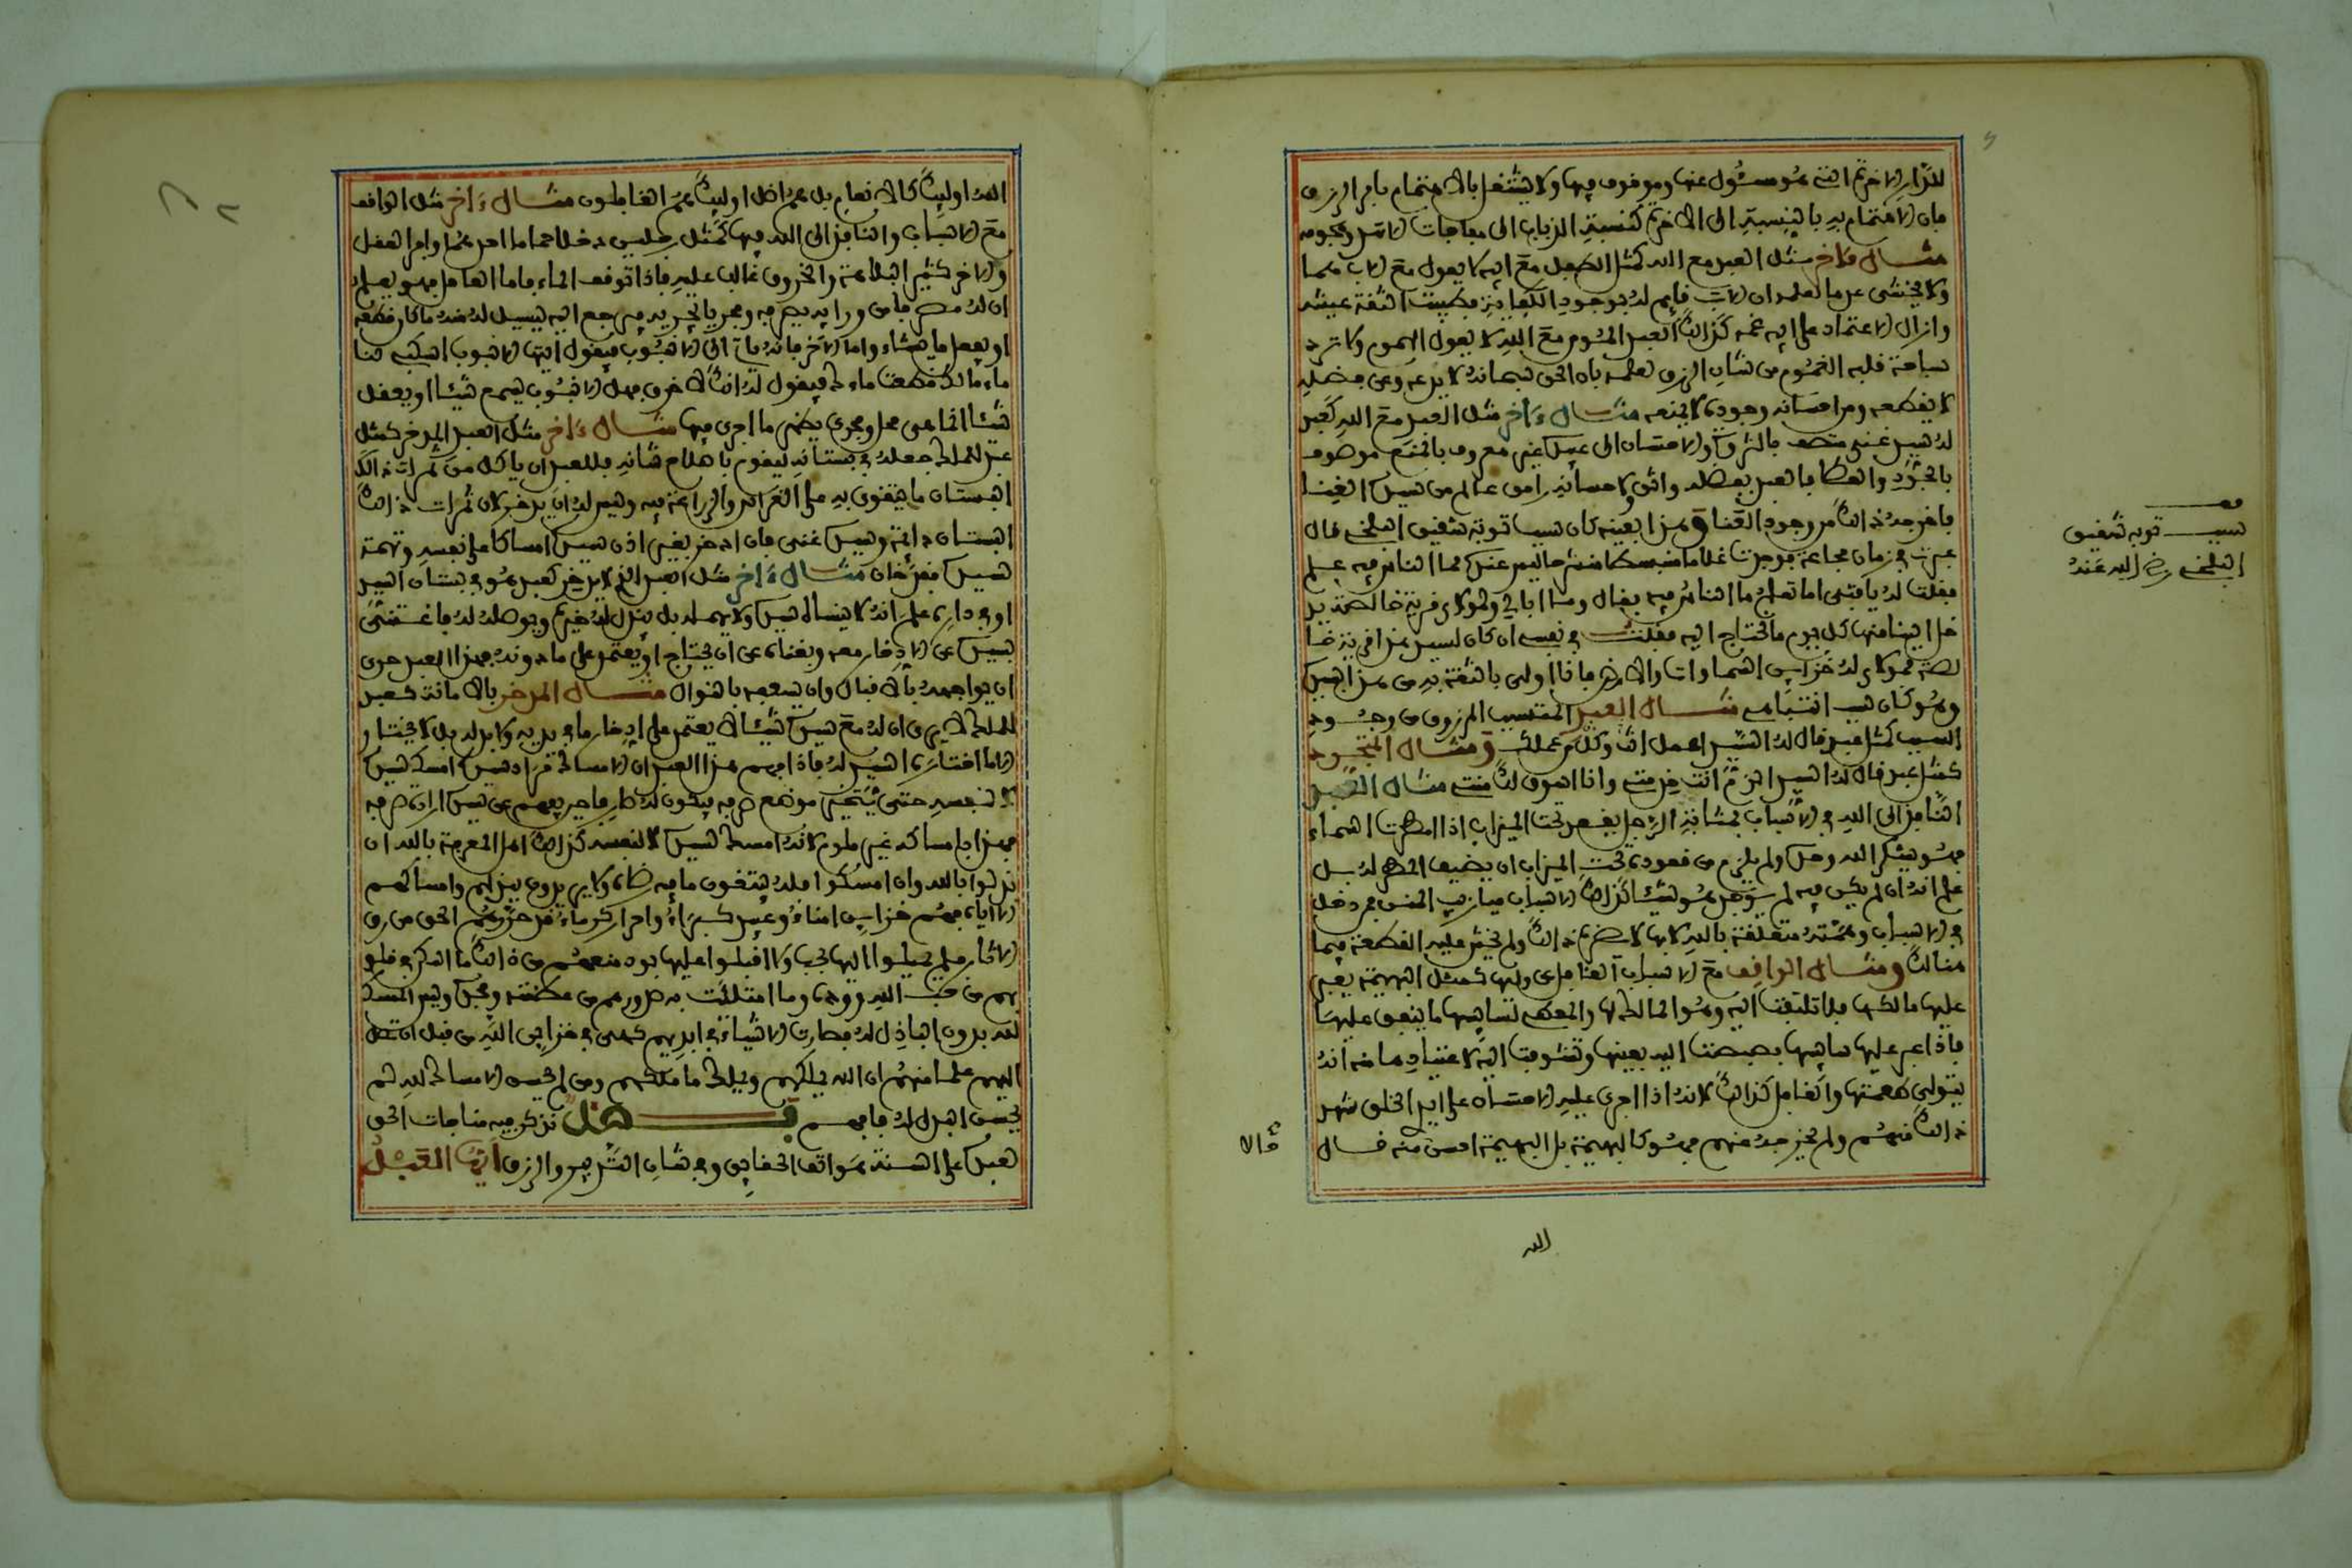 للدار الاخرة التي هو مسئول عنها وموقوف فيها ولا يشتغل بالاهتمام بامر الرزق
فان الاهتمام به بالنسبة الى الاخرة كنسبة الذباب الى مفاجات الاسد وهجومه
مثال ءاخر مثل العبد مع الله كمثل الطفل مع ابيه لا يعول مع الاب هما
ولا يخشى عدما لعلمه ان الاب قايم له بوجود الكفاية فطيبت الثقة عيشه
وازال الاعتماد على ابيه غمه كذالك العبد المومن مع الله لا يعول الهموم ولا ترد
ساحة قلبه الغموم من شان الرزق لعلمه بان الحق سبحانه لا يدعه وعن فضله
لا يقطعه ومن احسانه وجوده لا يمنعه مثال ءاخر مثل العبد مع الله كعبد
له سيد غني متصف بالثروة والاحسان الى عبيده غير معروف بالمنع موصوف
بالجود والعطا فالعبد بفضله واثق ولاحسانه رامق عالم من سيده الغنا
فاخرجه ذالك من وجود العنا وهذا بعينه كان سبب توبة شقيق البلخي قال
عبرت في زمان مجاعة فوجدت غلاما منبسطا منشرحا ليس عنده مما الناس فيه علم
فقلت له يا فتى اما تعلم ما الناس فيه فقال وما ابالي ولمولاي قرية خالصة يد
خل الينا منها كل يوم ما نحتاج اليه فقلت في نفسي ان كان لسيد هذا قرية خا
لصة فمولاي له خزاين السماوات والارض فانا اولى بالثقة به من هذا بسيده
وهو كان سبب انتباهي مثال العبد المتسبب المرزوق من وجود
السبب كمثل عبد قال له السيد اعمل انت وكل من عملك ومثال المتجرد
كمثل عبد قال له السيد الزم انت خدمتي وانا اسوق لك منتي مثال العبد
الناظر الى الله في الاسباب بمثابة الرجل يقعد تحت الميزاب اذا امطرت السماء
فهو يشكر الله وحده ولم يلزم من قعوده تحت الميزاب ان يضيف المطر له بل
علم انه ان لم يكن فيه لم يوجد هو شيئا كذالك الاسباب ميازيب المنن فمن دخل
في الاسباب وهمته متعلقة بالله لا بها لا يضره ذالك ولم يخش عليه القطعة فيما
هنالك ومثال الواقف مع الاسباب الغافل عن وليها كمثل البهيمة يعبر
عليها مالكها فلا تلتفت اليه وهو المالك لها والمعطي لسايسها ما ينفق عليها
فاذا عبر عليها سايسها بصبصت اليه بعينها وتشوفت اليه لاعتيادها منه انه
يتولى طعمتها والغافل كذالك لانه اذا اجري عليه الاحسان على ايدي الخلق شهد
ذالك منهم ولم يخرجه عنهم فهو كالبهيمة بل البهيمة احسن منه قال
الله
سبب توبة شقيق
البلخي رضي الله عنه
الله اوليك كالانعام بل هم اضل اوليك هم الغافلون مثال ءاخر مثل الواقف
مع الاسباب والنافذ الى الله فيها كمثل رجلين دخلا حماما احدهما وافر العقل
والاخر كثير البلاهة والخروق غالب عليه فاذا توقف الماء فاما العاقل فهو يعلم
ان له مصرفا من ورايه يصرفه ومجريا يجريه فيرجع اليه ليسيل له منه ما كان قطعه
او يفعل ما يشاء واما الاخر فانه ياتي الى الانبوب فيقول ايها الانبوب اسكب لنا
ماء ما لك قطعت ماءك فيقول له انك لاخرق فهل الانبوب يسمع شيئا او يعقل
شيئا انما هي محل ومجرى يظهر ما اجري فيها مثال ءاخر مثل العبد المدخر كمثل
عبد للملك جعله في بستانه ليقوم باصلاح شانه فللعبد ان ياكل من ثمرات ذالك
البستان ما يتقوى به على الغراس والزراعة فيه وليس له ان يدخر لان ثمرات ذالك
البستان دايمة وسيده غني فان ادخر بغير اذن سيده امساكا على نفسه وتهمة
لسيده فقد خان مثال ءاخر مثل العبد الذي لا يدخر كعبد هو في بستان السيد
او في داره علم انه لا ينساه سيده ولا يهمله بل يبذل له خيره ويوصله له فاغتنى
بسيده عن الادخار معه وبغناه عن ان يحتاج او يعتمد على ما دونه فهذا العبد حري
ان يواجهه بالاقبال وان يسعفه بالنوال مثال المدخر بالامانة كعبد
للملك لا يرى ان له مع سيده شيئا لا يعتمد على ادخار ما في يديه ولا بذله بل لا يختار
الا ما اختاره السيد له فاذا فهم هذا العبد ان الامساك مراد سيده امسك لسيده
لا لنفسه حتى يتحير موضع صرفه فيكون له صارفا حين يفهم عن سيده ارادة صرفه
فهذا بامساكه غير ملوم لانه امسك لسيده لا لنفسه كذالك اهل المعرفة بالله ان
بذلوا بالله وان امسكوا فله يبتغون ما فيه رضاه ولا يريدون ببذلهم وامساكهم
الا اياه فهم خزاين امناء وعبيد كبراء واحرار كرماء قد حررهم الحق من رق
الاثار فلم يميلوا اليها بحب ولا اقبلوا عليها بود منعهم من ذالك ما اسكن في قلو
بهم من حب الله ووده وما امتلات به صدورهم من عظمته ومجده وليس الممسك
لله بدون الباذل له فصارت الاشياء في ايديهم كهي في خزاين الله من قبل ان تصل
اليهم علما منهم ان الله يملكهم ويملك ما ملكهم ومن لم يحسن الامساك لله لم
يحسن البذل له فافهم فصل نذكر فيه مناجات الحق
لعبده على السنة هواتف الحقايق في شان التدبير والرزق ايها العبد